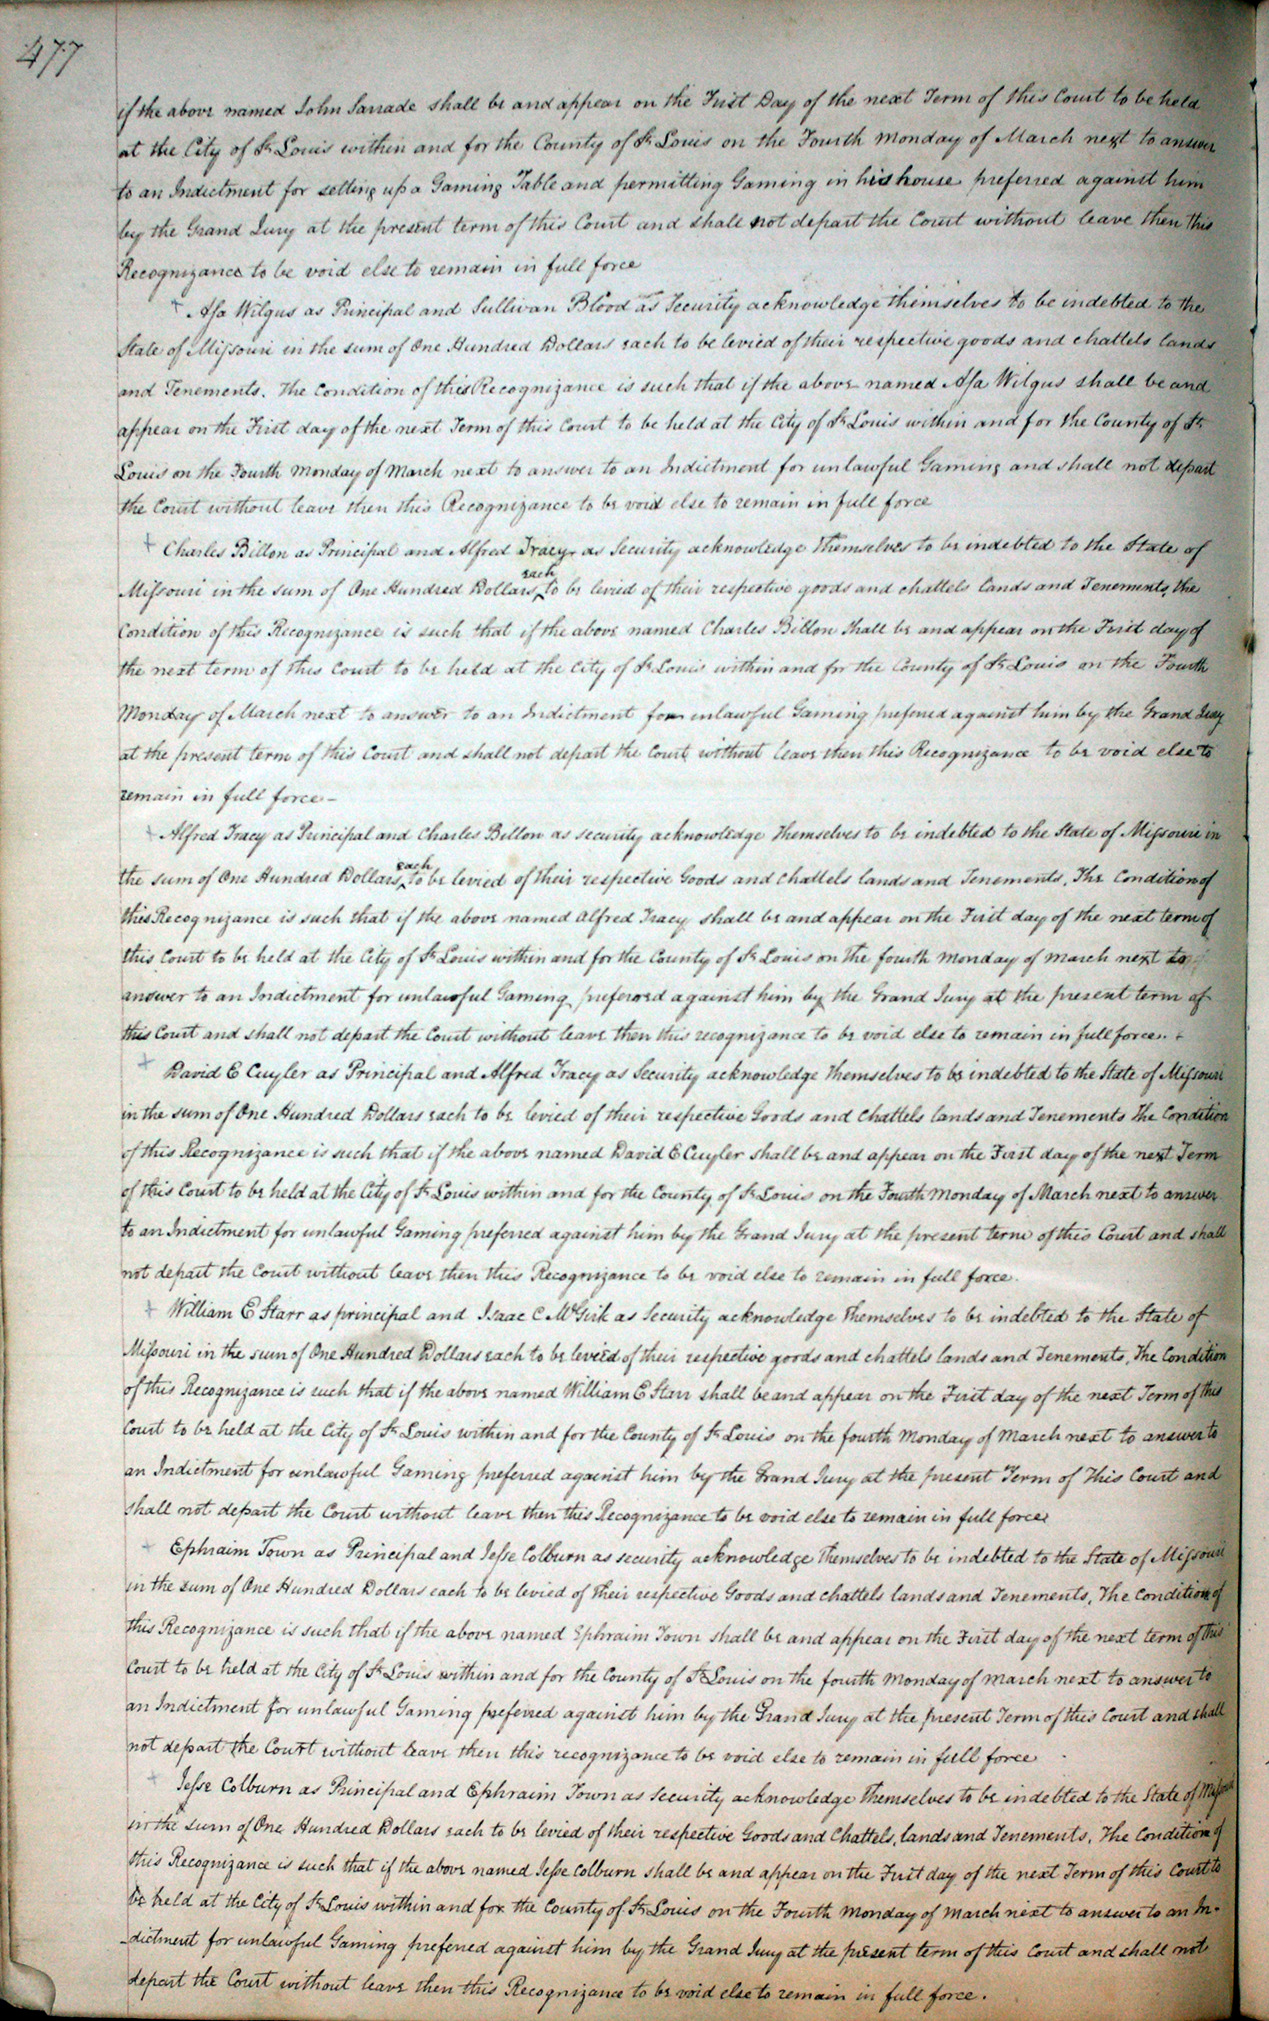 477
if the above named John Sarrade shall be and appear on the First Day of the next Term of this Court to be held
at the City of St Louis within and for the County of St Louis on the Fourth Monday of March next to answer
to an Indictment for setting up a Gaming Table and permitting Gaming in his house preferred against him
by the Grand Jury at the present term of this Court and shall not depart the Court without leave then this
Recognizance to be void else to remain in full force
+ Asa Wilgus as Principal and Sullivan Blood as Security acknowledge themselves to be indebted to the
State of Missouri in the sum of One Hundred Dollars each to be levied of their respective goods and chattels lands
and Tenements. The Condition of this Recognizance is such that if the above named Asa Wilgus shall be and
appear on the First day of the next Term of this Court to be held at the City of St Louis within and for the County of St
Louis on the Fourth Monday of March next to answer to an Indictment for unlawful Gaming and shall not depart
the Court without leave then this Recognizance to be void else to remain in full force
+ Charles Billon as Principal and Alfred Tracy as Security acknowledge themselves to be indebted to the State of
Missouri in the sum of One Hundred Dollars each to be levied of their respective goods and chattels lands and Tenements, the
Condition of this Recognizance is such that if the above named Charles Billon shall be and appear on the First day of
the next term of this Court to be held at the City of St Louis within and for the County of St Louis on the Fourth
Monday of March next to answer to an Indictment for unlawful Gaming preferred against him by the Grand Jury
at the present term of this Court and shall not depart the Court without leave then this Recognizance to be void else to
remain in full force -
+ Alfred Tracy as Principal and Charles Billon as security acknowledge themselves to be indebted to the State of Missouri in
the sum of One Hundred Dollars each to be levied of their respective Goods and chattels lands and Tenements, The Condition of
this Recognizance is such that if the above named Alfred Tracy shall be and appear on the First day of the next term of
this Court to be held at the City of St Louis within and for the County of St Louis on the fourth Monday of March next to
answer to an Indictment for unlawful Gaming preferred against him by the Grand Jury at the present term of
this Court and shall not depart the Court without leave then this recognizance to be void else to remain in full force. +
+ David E Cuyler as Principal and Alfred Tracy as Security acknowledge themselves to be indebted to the State of Missouri
in the sum of One Hundred Dollars each to be levied of their respective Goods and Chattels lands and Tenements The Condition
of this Recognizance is such that if the above named David E Cuyler shall be and appear on the First day of the next Term
of this Court to be held at the City of St Louis within and for the County of St Louis on the Fourth Monday of March next to answer
to an Indictment for unlawful Gaming preferred against him by the Grand Jury at the present term of this Court and shall
not depart the Court without leave then this Recognizance to be void else to remain in full force.
+ William E Starr as principal and Isaac C McGirk as Security acknowledge themselves to be indebted to the State of
Missouri in the sum of One Hundred Dollars each to be levied of their respective goods and chattels lands and Tenements, The Condition
of this Recognizance is such that if the above named William E Starr shall be and appear on the First day of the next Term of this
Court to be held at the City of St Louis within and for the County of St Louis on the fourth Monday of March next to answer to
an Indictment for unlawful Gaming preferred against him by the Grand Jury at the present Term of this Court and
shall not depart the Court without leave then this Recognizance to be void else to remain in full force
+ Ephraim Town as Principal and Jesse Colburn as security acknowledge themselves to be indebted to the State of Missouri
in the sum of One Hundred Dollars each to be levied of their respective Goods and chattels lands and Tenements, The Condition of
this Recognizance is such that if the above named Ephraim Town shall be and appear on the First day of the next term of this
Court to be held at the City of St Louis within and for the County of St Louis on the fourth Monday of March next to answer to
an Indictment for unlawful Gaming preferred against him by the Grand Jury at the present Term of this Court and shall
not depart the Court without leave then this recognizance to be void else to remain in full force
+ Jesse Colburn as Principal and Ephraim Town as Security acknowledge themselves to be indebted to the State of Missouri
in the sum of One Hundred Dollars each to be levied of their respective Goods and Chattels, lands and Tenements, The Condition of
this Recognizance is such that if the above named Jesse Colburn shall be and appear on the First day of the next Term of this Court to
be held at the City of St Louis within and for the County of St Louis on the Fourth Monday of March next to answer to an In-
-dictment for unlawful Gaming preferred against him by the Grand Jury at the present term of this Court and shall not
depart the Court without leave then this Recognizance to be void else to remain in full force.